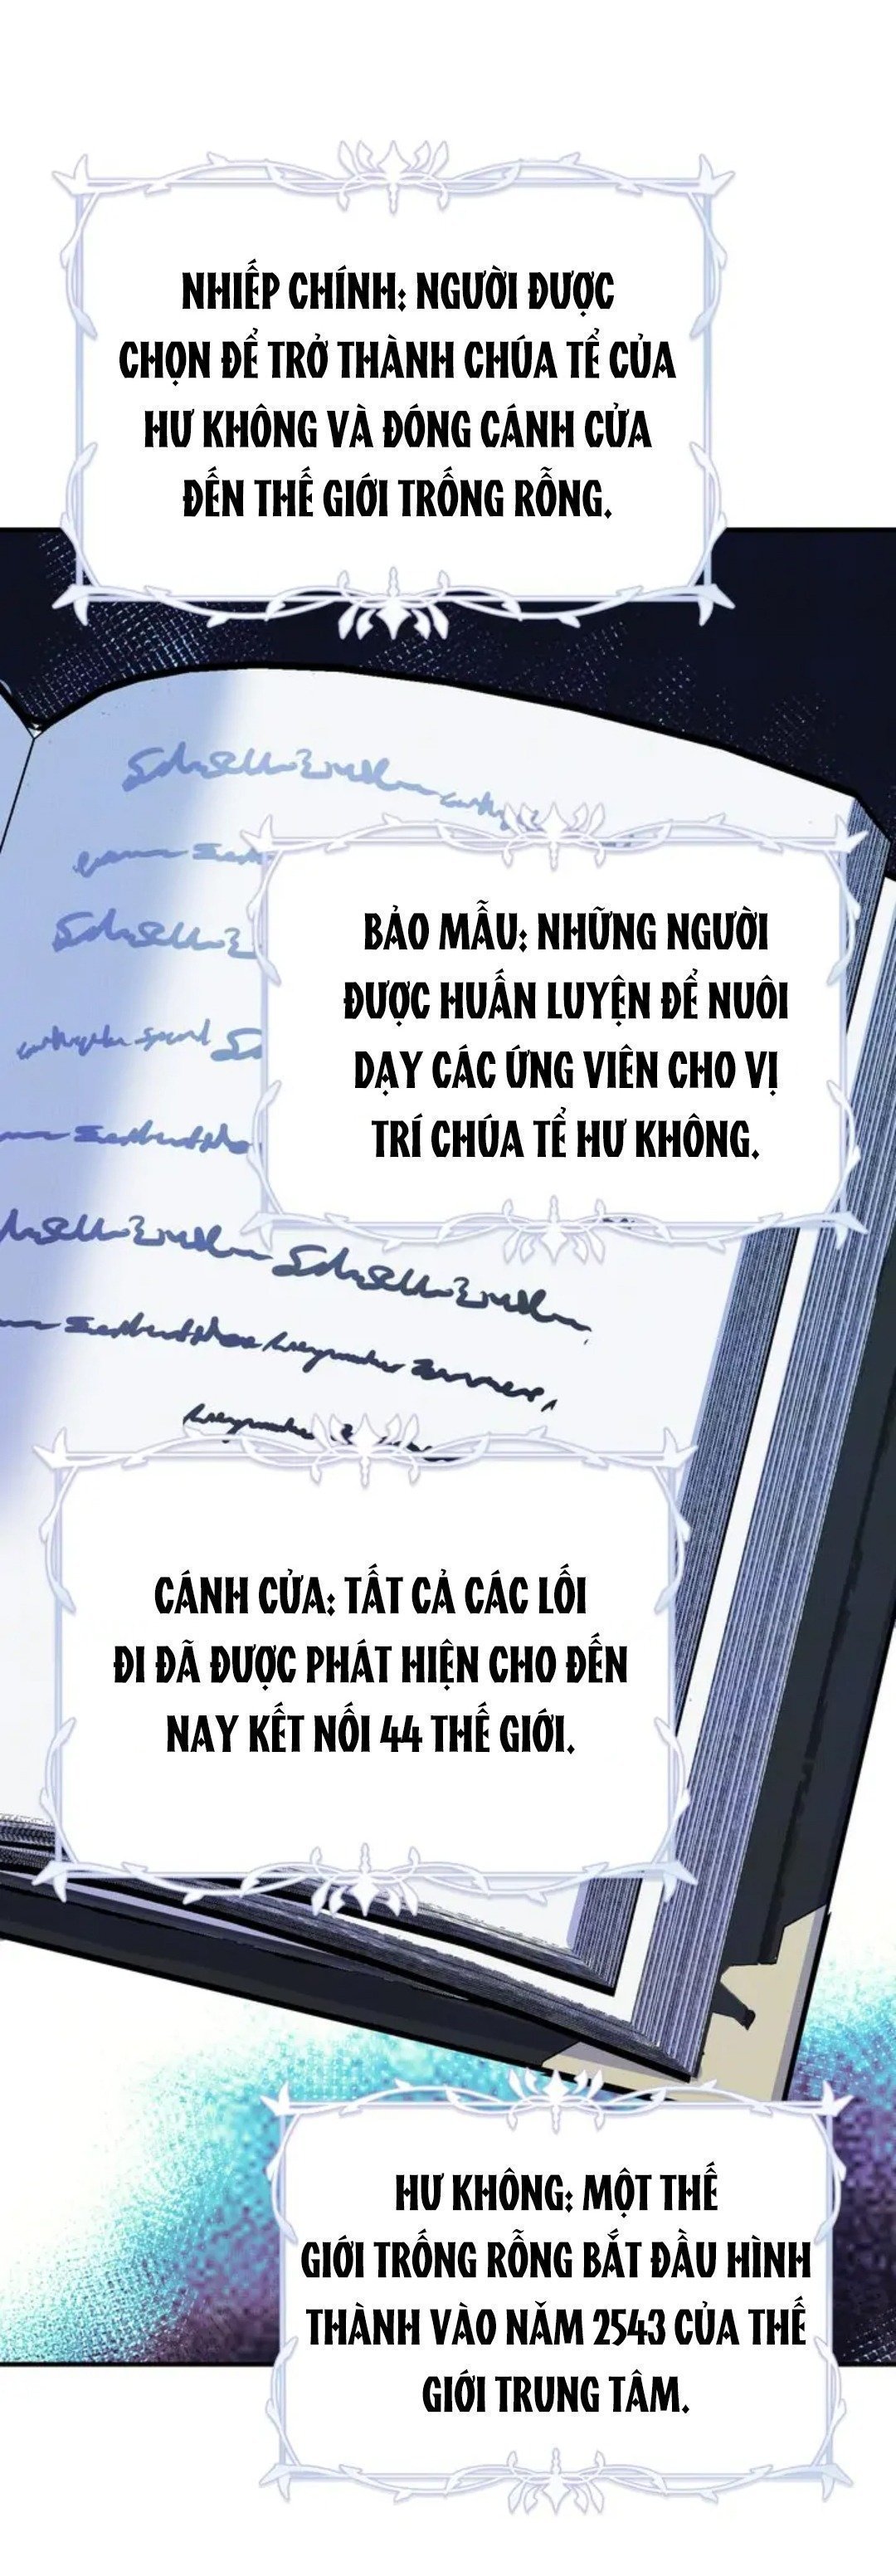 NHIẾP CHÍNH: NGƯỜI ĐƯỢC
CHỌN ĐỂ TRỞ THÀNH CHÚA TỂ CỦA
HƯ KHÔNG VÀ ĐÓNG CÁNH CỬA
ĐẾN THẾ GIỚI TRỐNG RỖNG.
BẢO MẪU: NHỮNG NGƯỜI
ĐƯỢC HUẤN LUYỆN ĐỂ NUÔI
DẠY CÁC ỨNG VIÊN CHO VỊ
TRÍ CHÚA TỂ HƯ KHÔNG.
CÁNH CỬA: TẤT CẢ CÁC LỐI
ĐI ĐÃ ĐƯỢC PHÁT HIỆN CHO ĐẾN
NAY KẾT NỐI 44 THẾ GIỚI.
HƯ KHÔNG: MỘT THẾ
GIỚI TRỐNG RỖNG BẮT ĐẦU HÌNH
THÀNH VÀO NĂM 2543 CỦA THẾ
GIỚI TRUNG TÂM.